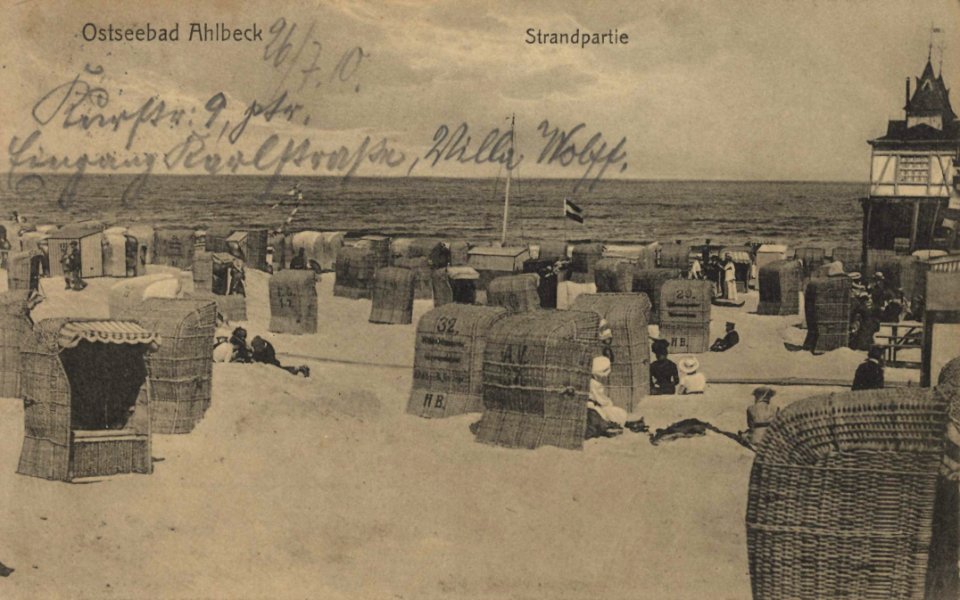 Ostseebad Ahlbeck
Strandpartie
26/7.10.
Kurstr. 9, ptr.
Eingang Karlstraße, Villa Wolff.
32.
H B.
A.V.
23.
H B.